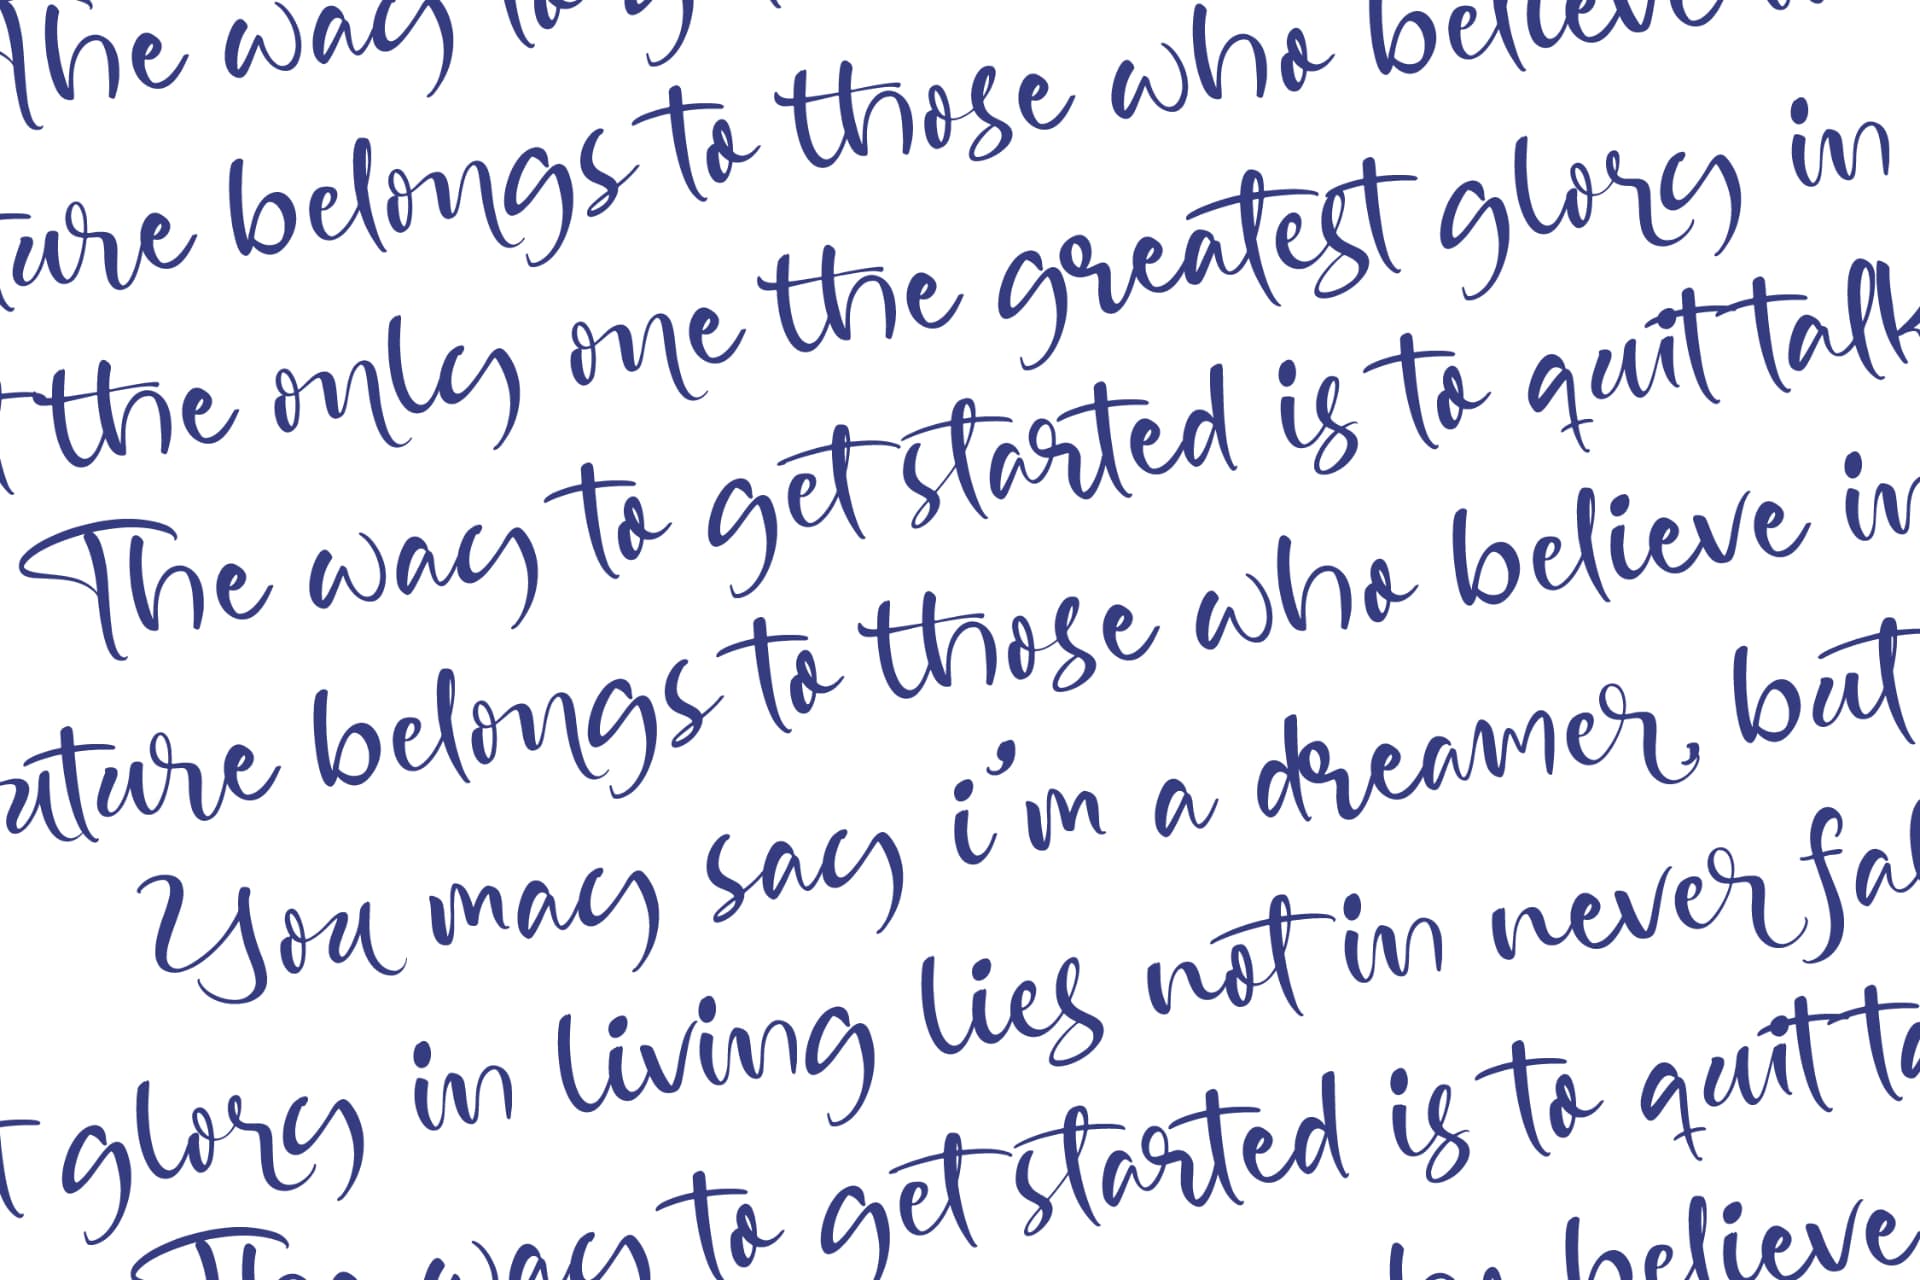 The way to g
ture belongs to those who believe
the only one the greatest glory in
The way to get started is to quit talk
uture belongs to those who believe in
You may say i'm a dreamer, but
t glory in living lies not in never fal
The way to get started is to quit ta
believe